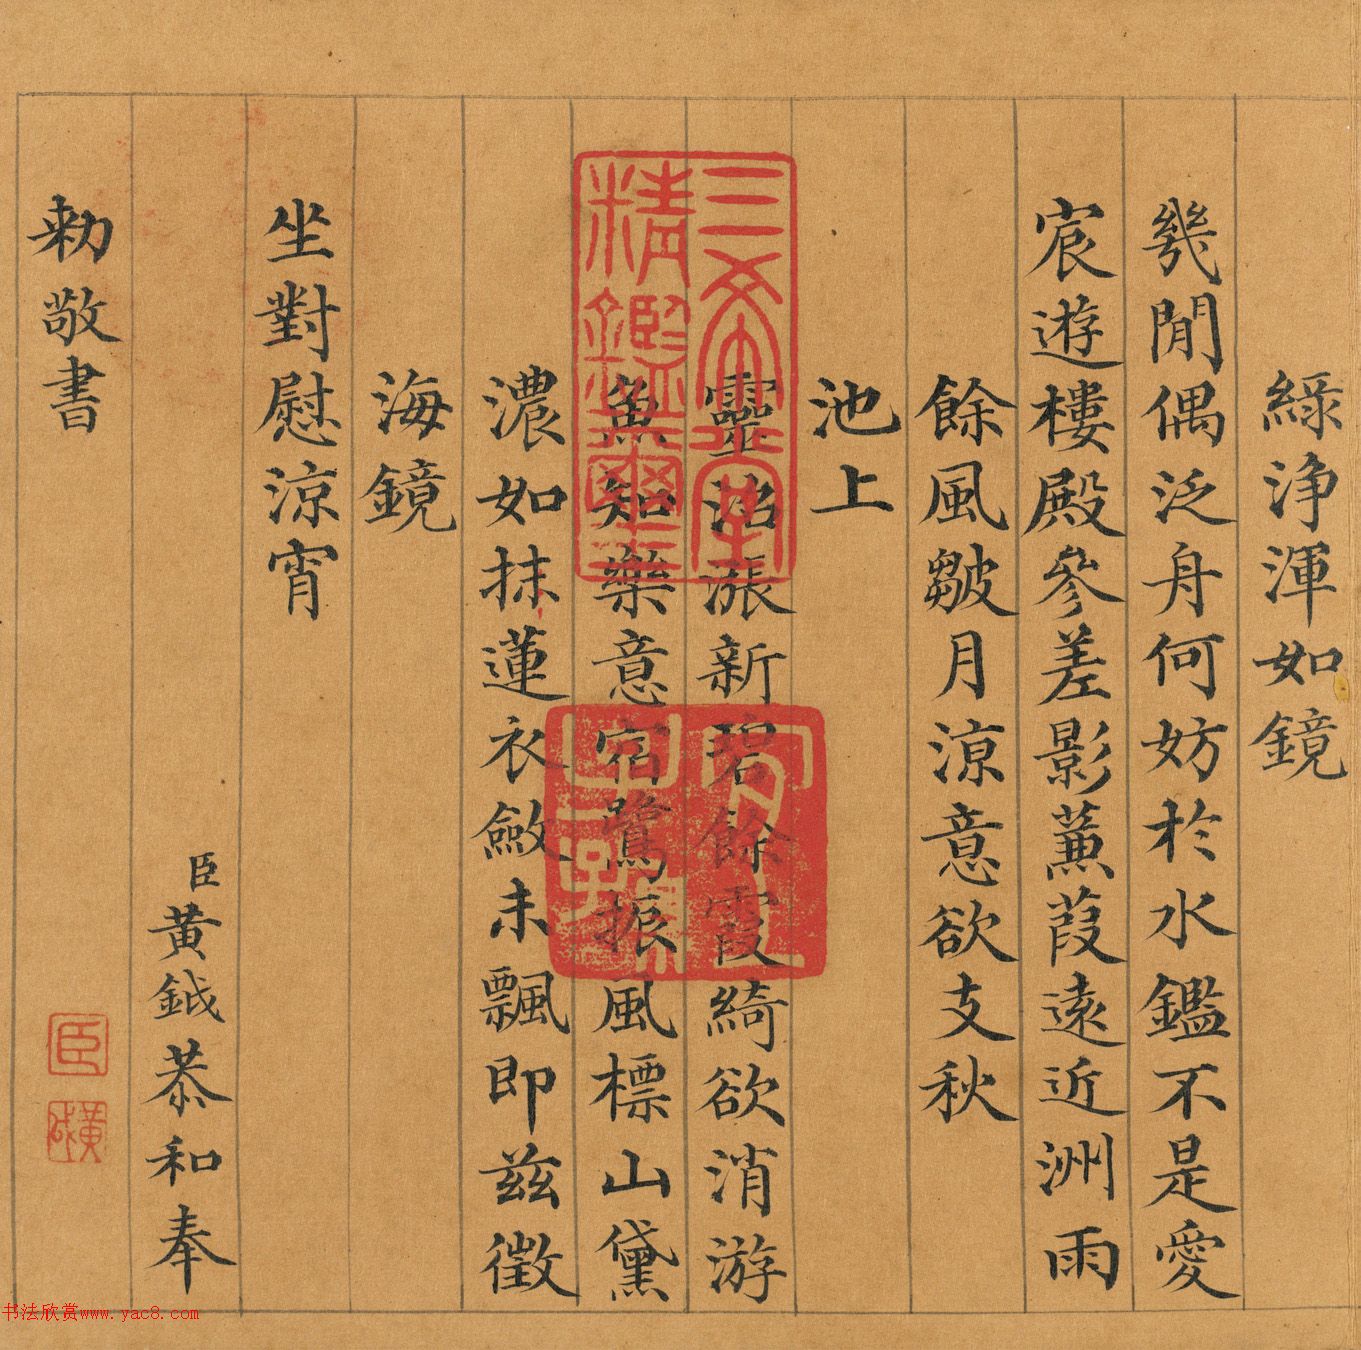 綠浄渾如鏡
幾閒偶泛舟何妨於水鑑不是愛
宸遊樓殿參差影蒹葭遠近洲雨
餘風皺月涼意欲支秋
池上
靈沼漲新碧餘霞綺欲消游
魚知樂意宿鷺振風標山黛
濃如抹蓮衣斂未飄即兹徵
海鏡
坐對慰涼宵
臣黄鉞恭和奉
勅敬書
三希堂
精鑑璽
宜
子孫
臣
黄鉞
书法欣赏www.yac8.com